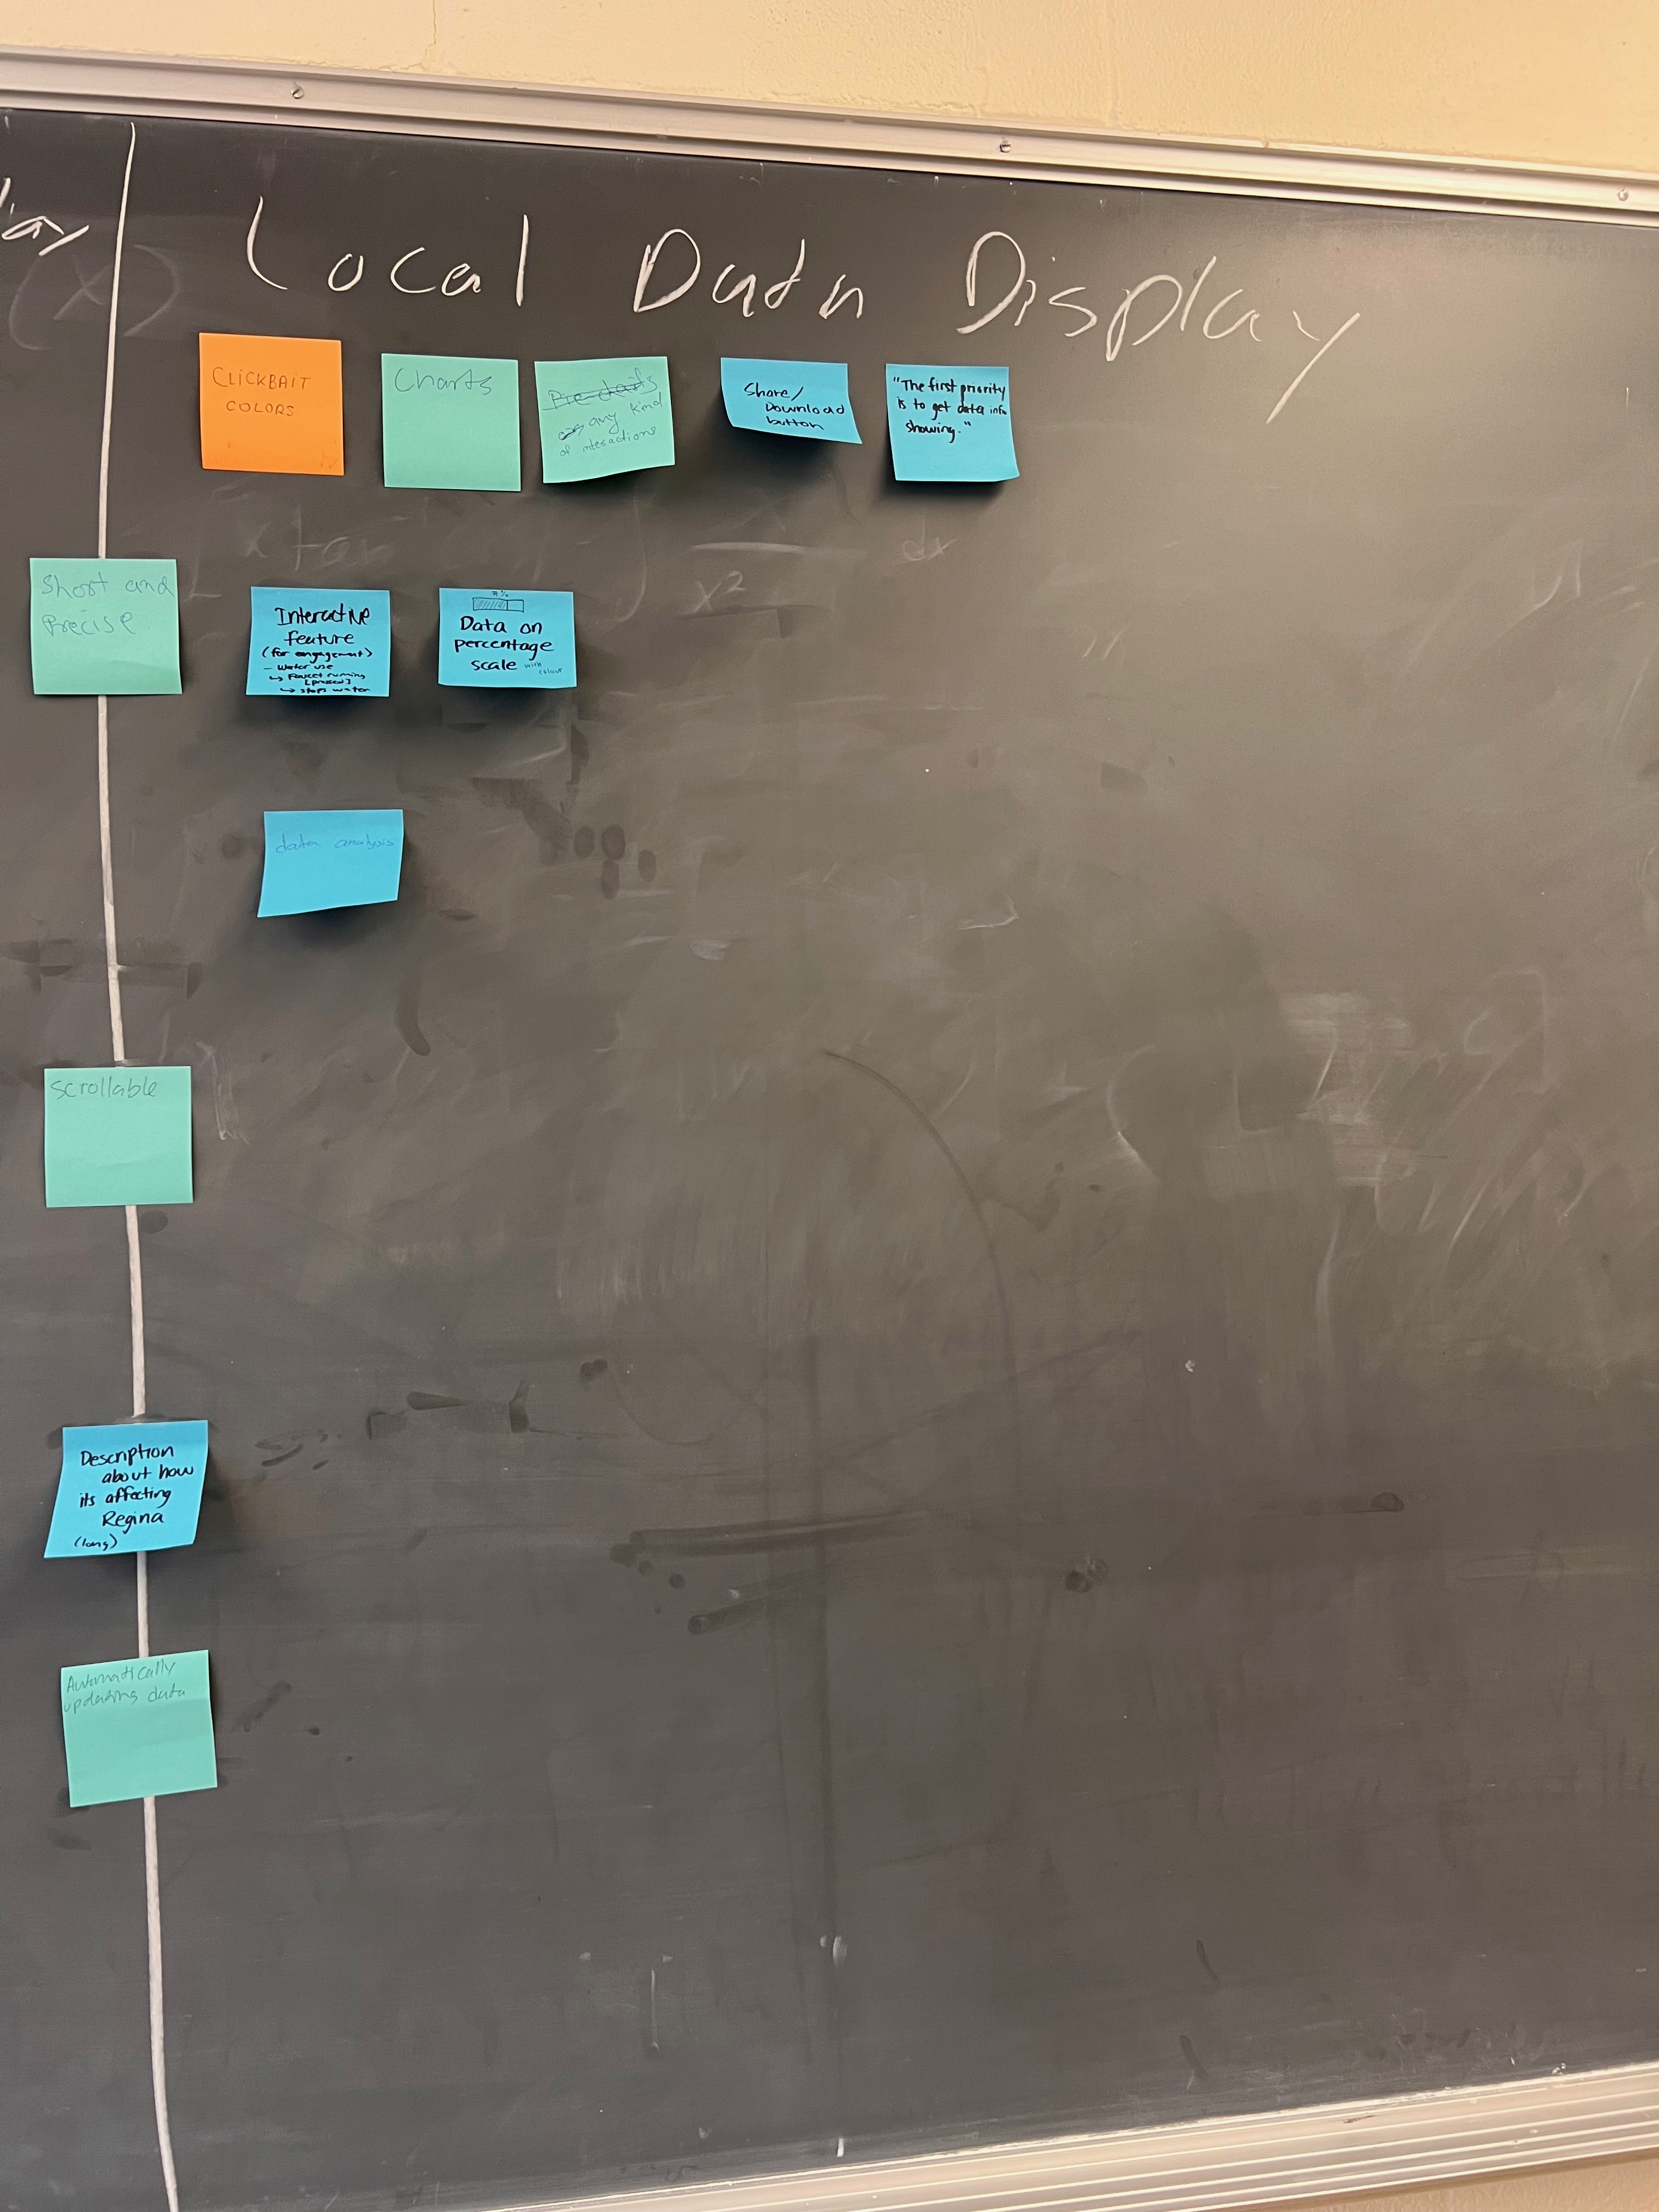 Local Data Display
CLICKBAIT
COLORS
Charts
any kind
of interactions
Share/
Download
button
"The first priority
is to get data info
showing."
Short and
Precise
Interactive
feature
(for engagement)
- Water use
↳ Faucet running
[pressed]
↳ stops water
Data on
percentage
scale with
colour
data analysis
Scrollable
Description
about how
its affecting
Regina
(long)
Automatically
updating data
x²
dx